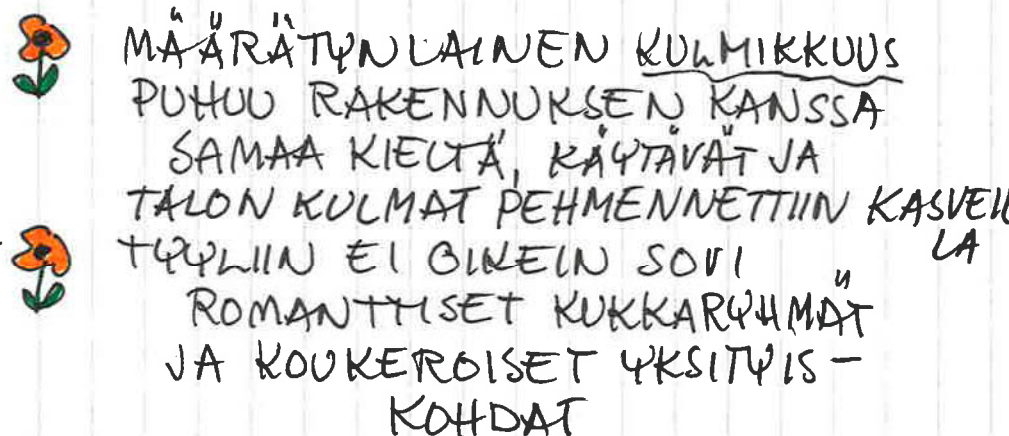 MÄÄRÄTYNLAINEN KULMIKKUUS
PUHUU RAKENNUKSEN KANSSA
SAMAA KIELTÄ, KÄYTÄVÄT JA
TALON KULMAT PEHMENNETTIIN KASVEIL
LA
TYYLIIN EI OIKEIN SOVI
ROMANTTISET KUKKARYHMÄT
JA KOUKEROISET YKSITYIS-
KOHDAT